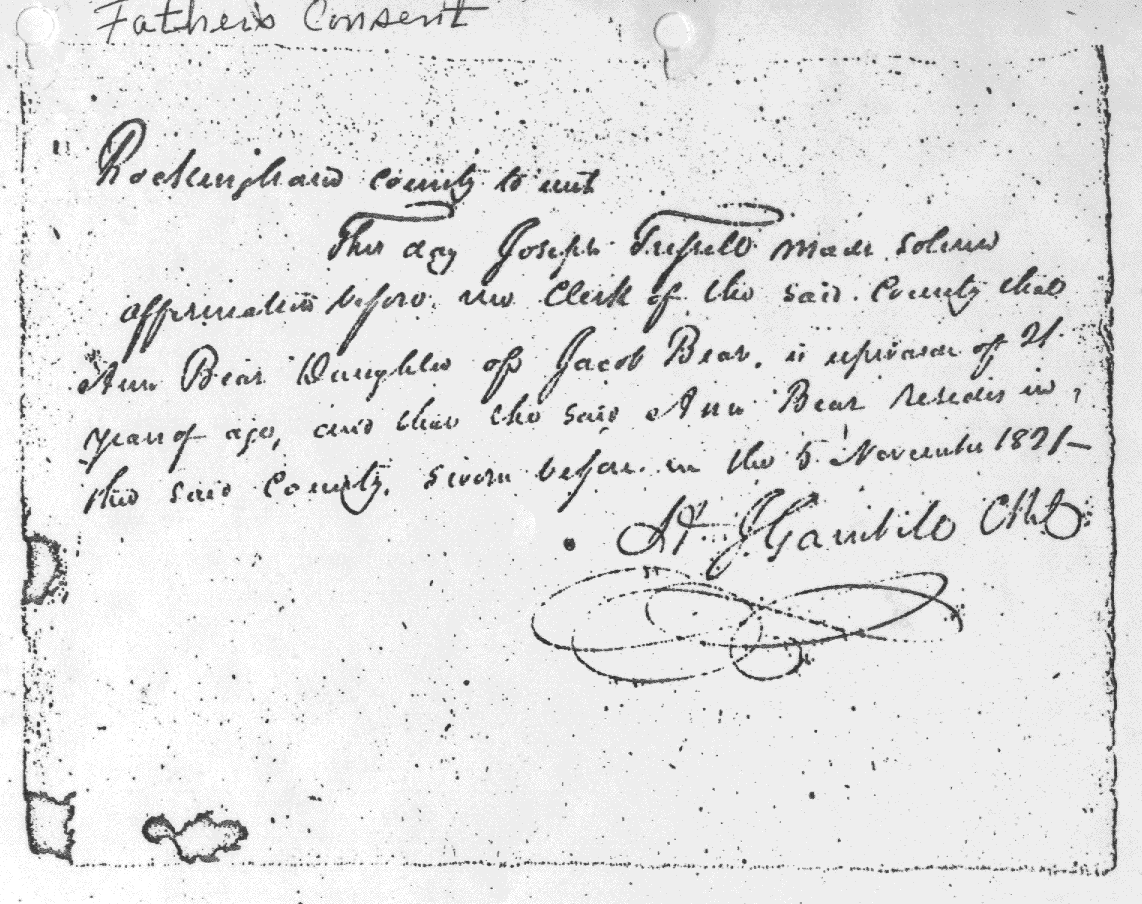 Fathers Consent
Rockingham County to wit
This day Joseph made solemn
affirmation before me Clerk of the said County that
Ann Bear Daughter of Jacob Bear, is upwards of 21
years of age, and that the said Ann Bear resides in
the said County. Sworn before me the 5 November 1821
Gambill